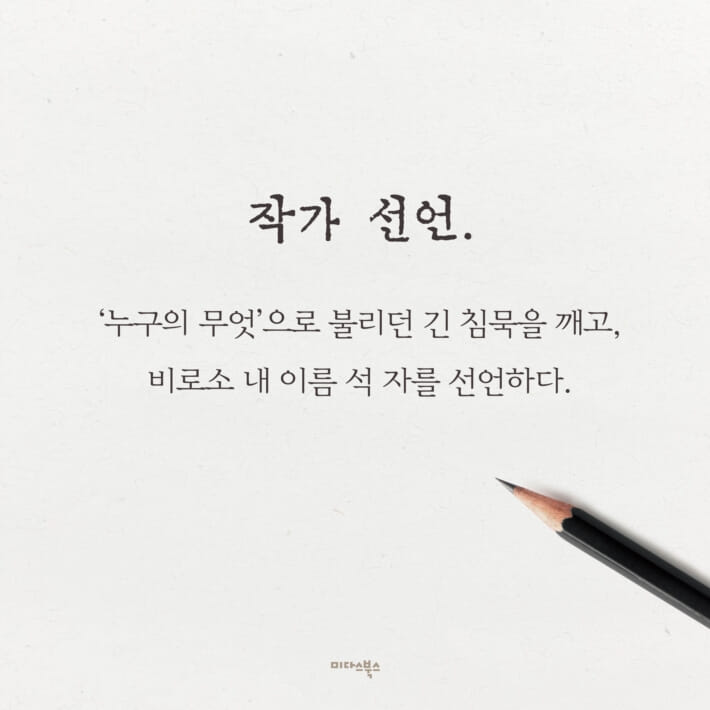 작가 선언.
‘누구의 무엇’으로 불리던 긴 침묵을 깨고,
비로소 내 이름 석 자를 선언하다.
미다스북스